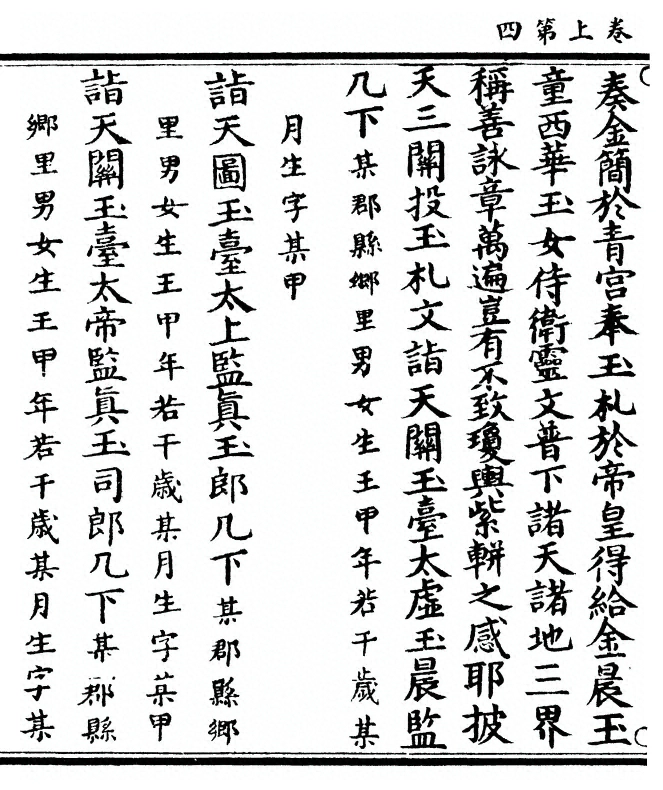 卷上第四
奏金簡於青宮奉玉札於帝皇得給金晨玉
童西華玉女侍衛靈文普下諸天諸地三界
稱善詠章萬遍豈有不致瓊輿紫軿之感耶披
天三關投玉札文詣天關玉臺太虛玉晨監
几下某郡縣鄉里男女生王甲年若干歲某
月生字某甲
詣天圖玉臺太上監真玉郎几下某郡縣鄉
里男女生王甲年若干歲某月生字某甲
詣天關玉臺太帝監真玉司郎几下某郡縣
鄉里男女生王甲年若干歲某月生字某